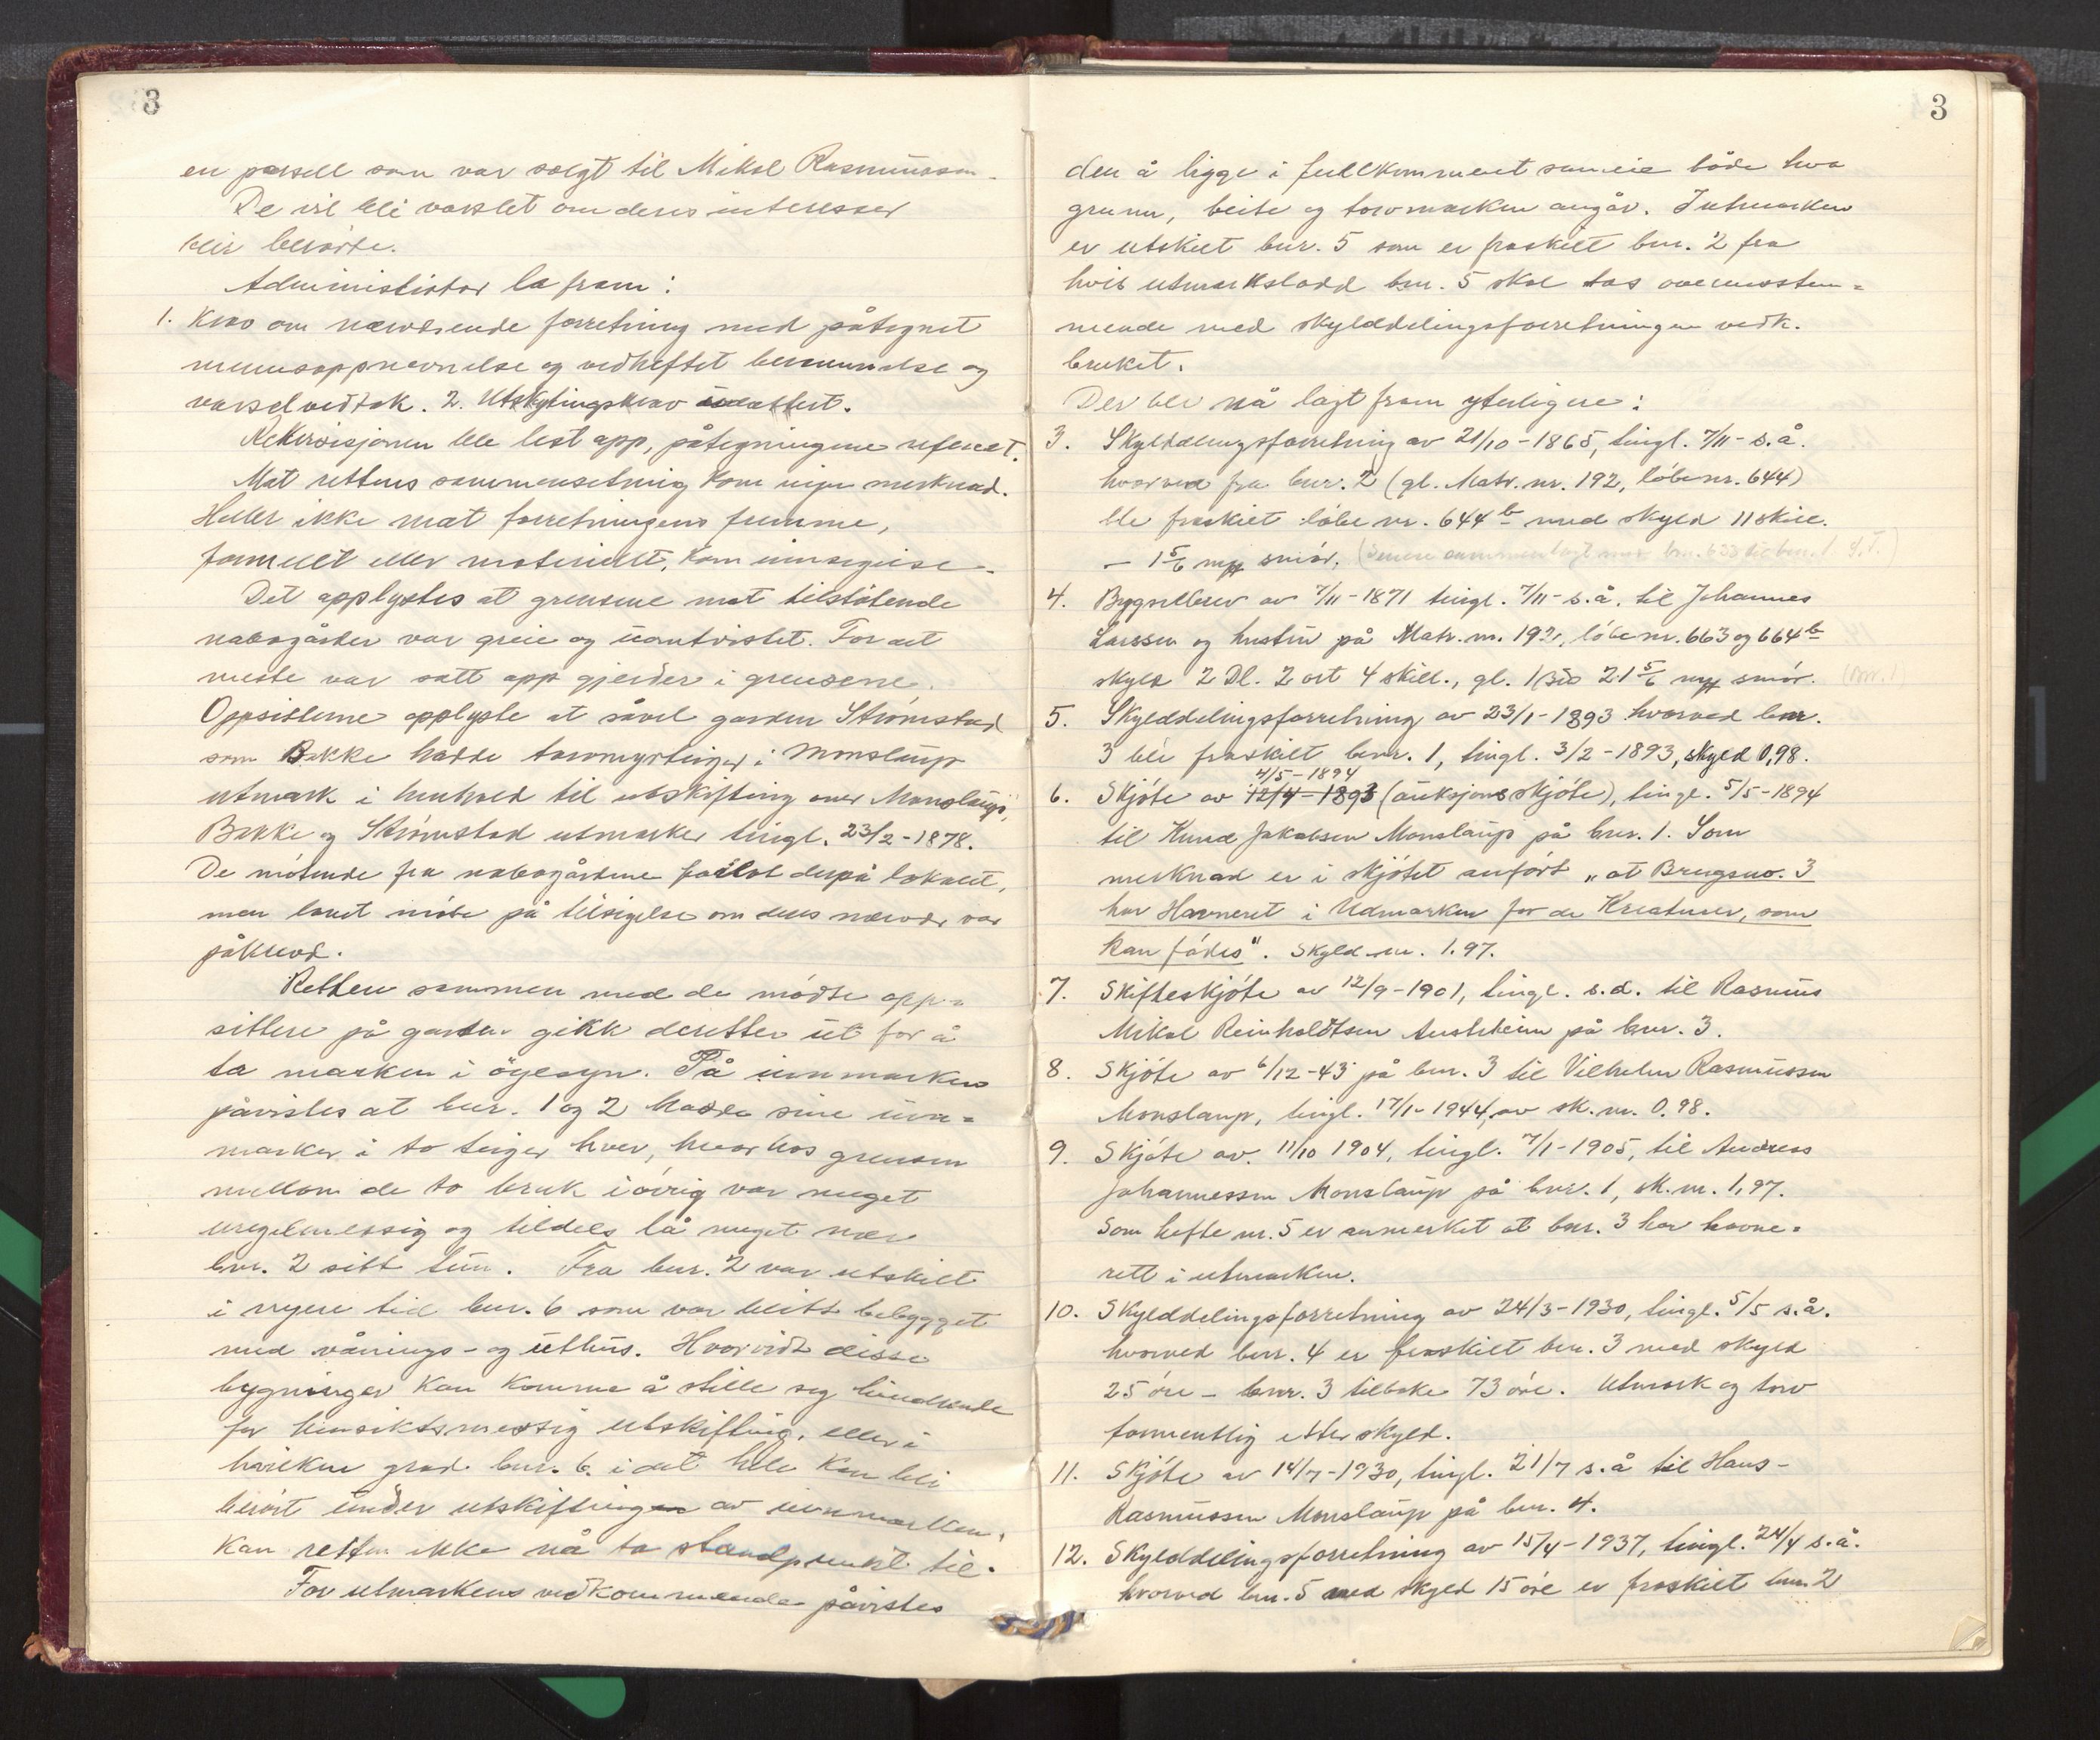 3
en parsell som var solgt til Mikal Rasmussen.
De vil bli varslet om deres interesser
blir berørte.
Administrator la fram:
1. Krav om nærværende forretning med påtegnet
mennsoppnevnelse og vedheftet berammelse og
varselvedtak. 2. Utskiftingskrav
Rekvisisjonen ble lest opp, påtegningene referert.
Mot rettens sammensetning kom ingen merknad.
Heller ikke mot forretningens fremme,
formellt eller materiellt, kom innsigelse.
Det opplystes at grensene mot tilstøtende
nabogårder var greie og uomtvistet. For det
meste var satt opp gjerder i grensene.
Oppsitterne opplyste at såvel garden Strømstad
som Bakke hadde torvmyrteiger i Monslaup
utmark i henhold til utskifting over Monslaups,
Bakke og Strømstad utmarker tingl. 23/2-1878.
De møtende fra nabogårdene forlot derpå lokalet,
men lovet møte på tilsigelse om deres nærvær var
påkrevd.
Retten sammen med de mødte opp-
sittere på garden gikk deretter ut for å
ta marken i øyesyn. På innmarken
påvistes at bnr. 1 og 2 hadde sine inn-
marker i to teiger hver, hvorhos grensen
mellom de to bruk iøvrig var meget
uregelmessig og tildels lå meget nær
bnr. 2 sitt tun. Fra bnr. 2 var utskilt
i nyere tid bnr. 6 som var blitt bebygget
med vånings- og uthus. Hvorvidt disse
bygninger kan komme å stille seg hindrende
for hensiktsmessig utskifting, eller i
hvilken grad bnr. 6 i det hele kan bli
berørt under utskiftingen av innmarken,
kan retten ikke nå ta standpunkt til.
For utmarkens vedkommende påvistes
3
den å ligge i fullkomment sameie både hva
grunn, beite og torvmarken angår. I utmarken
er utskilt bnr. 5 som er fraskilt bnr. 2 fra
hvis utmarkslodd bnr. 5 skal tas overensstem-
mende med skylddelingsforretningen vedk.
bruket.
Der ble nå lagt fram yterligere:
3. Skylddelingsforretning av 21/10-1865, tingl. 7/11- s.å.
hvorved fra bnr. 2 (gl. Matr. nr. 192, løbenr. 644)
ble fraskilt løbe nr. 644b med skyld 11 skill.
- 1 5/6 mrk smør. (Senere sammenlagt med bnr. 633 til bnr. 1.
4. Bygselbrev av 7/11-1871 tingl. 7/11- s.å. til Johannes
Larssen og hustru på Matr. nr. 192, løbenr. 663 og 664b
skyld 2 Dl. 2 ort 4 skill., gl. 21 5/6 mrk smør. (bnr. 1)
5. Skylddelingsforretning av 23/1-1893 hvorved bnr.
3 ble fraskilt bnr. 1, tingl. 3/2-1893, skyld 0,98.
4/5-1894
6. Skjøte av 12/4-1893 (auksjonsskjøte), tingl. 5/5-1894
til Knud Jakobsen Monslaup på bnr. 1. Som
merknad er i skjøtet anført „at Brugsno. 3
har Havneret i Udmarken for de Kreaturer, som
kan fødes". Skyld m. 1.97.
7. Skifteskjøte av 12/9-1901, tingl. s.d. til Rasmus
Mikal Reinholdtsen Austrheim på bnr. 3.
8. Skjøte av 6/12-43 på bnr. 3 til Vilhelm Rasmussen
Monslaup, tingl. 17/1-1944, av sk. m. 0.98.
9. Skjøte av. 11/10 1904, tingl. 7/1-1905, til Andreas
Johannessen Monslaup på bnr. 1, sk. m. 1,97.
Som hefte nr. 5 er anmerket at bnr. 3 har havne-
rett i utmarken.
10. Skylddelingsforretning av 24/3-1930, tingl. 5/5 s.å.
hvorved bnr. 4 er fraskilt bnr. 3 med skyld
25 øre - bnr. 3 tilbake 73 øre. Utmark og torv
formentlig etter skyld.
11. Skjøte av 14/7-1930, tingl. 21/7 s.å til Hans
Rasmussen Monslaup på bnr. 4.
12. Skylddelingsforretning av 15/4-1937, tingl. 24/4 s.å.
hvorved bnr. 5 med skyld 15 øre er fraskilt bnr. 2